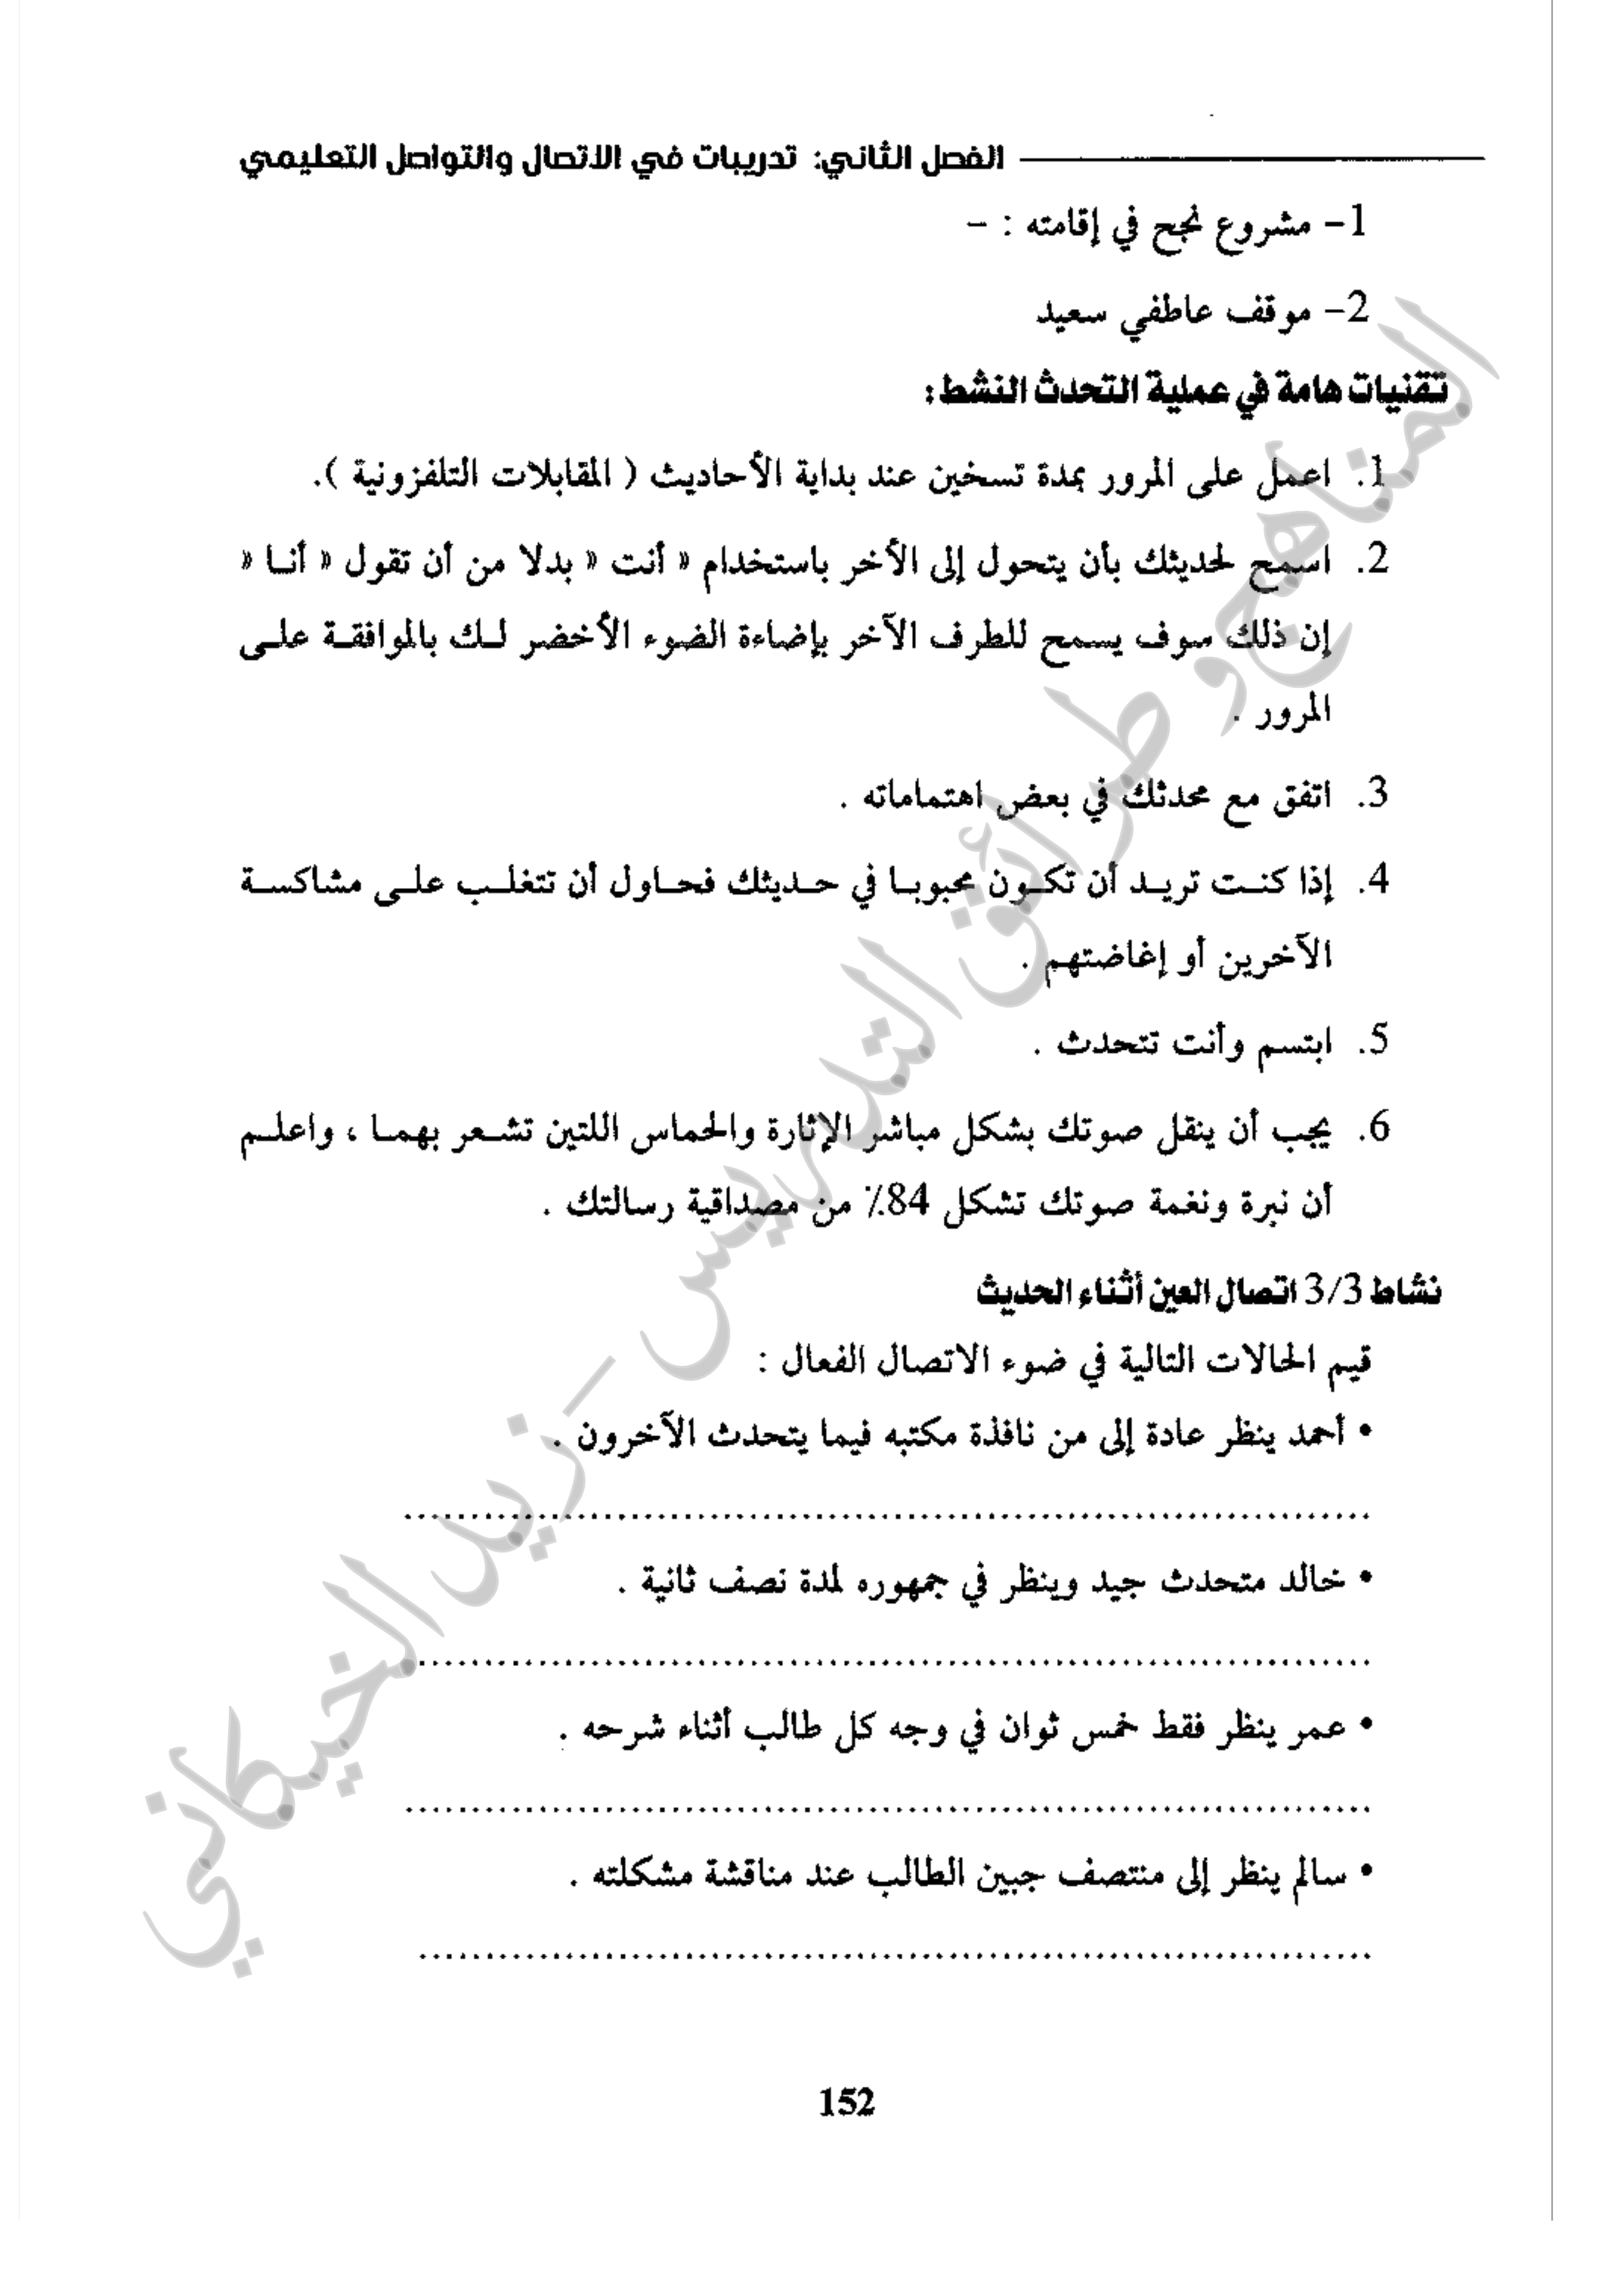 الفصل الثاني: تدريبات في الاتصال والتواصل التعليمي
1- مشروع نجح في إقامته : -
2- موقف عاطفي سعيد
تقنيات هامة في عملية التحدث النشط:
1. اعمل على المرور بمدة تسخين عند بداية الأحاديث ( المقابلات التلفزونية ).
2. اسمح لحديثك بأن يتحول إلى الأخر باستخدام » أنت « بدلا من أن تقول » أنا «
إن ذلك سوف يسمح للطرف الآخر بإضاءة الضوء الأخضر لك بالموافقة على
المرور .
3. اتفق مع محدثك في بعض اهتماماته .
4. إذا كنت تريد أن تكون محبوبا في حديثك فحاول أن تتغلب على مشاكسة
الآخرين أو إغاضتهم .
5. ابتسم وأنت تتحدث .
6. يجب أن ينقل صوتك بشكل مباشر الإثارة والحماس اللتين تشعر بهما ، واعلم
أن نبرة ونغمة صوتك تشكل 84٪ من مصداقية رسالتك .
نشاط 3/3 اتصال العين أثناء الحديث
قيم الحالات التالية في ضوء الاتصال الفعال :
• أحمد ينظر عادة إلى من نافذة مكتبه فيما يتحدث الآخرون .
........................................................................
• خالد متحدث جيد وينظر في جمهوره لمدة نصف ثانية .
........................................................................
• عمر ينظر فقط خمس ثوان في وجه كل طالب أثناء شرحه .
........................................................................
• سالم ينظر إلى منتصف جبين الطالب عند مناقشة مشكلته .
........................................................................
152
المناهج وطرائق التدريس - زيد الخيكاني